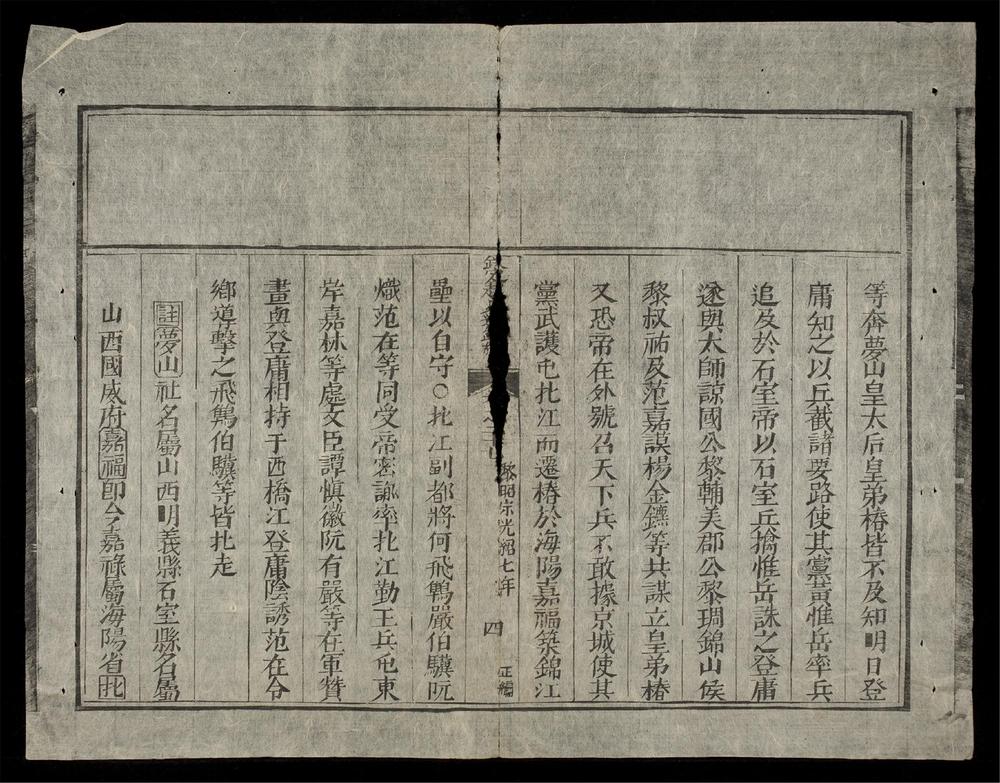 等奔夢山皇太后皇弟椿皆不及知明日登
庸知之以兵截諸要路使其黨黃惟岳率兵
追及於石室帝以石室兵擒惟岳誅之登庸
遂與太師諒國公黎輔美郡公黎琱錦山侯
黎叔祐及范嘉謨楊金鑣等共謀立皇弟椿
又恐帝在外號召天下兵不敢據京城使其
黨武護屯北江而遷椿於海陽嘉福築錦江
黎昭宗光紹七年 四 正編
壘以自守○北江副都將何飛鵬嚴伯驥阮
熾范在等同受帝密諭率北江勤王兵屯東
岸嘉林等處文臣譚慎徽阮有嚴等在軍贊
畫與登庸相持于西橋江登庸陰誘范在令
鄉道擊之飛鵬伯驥等皆北走
註夢山社名屬山西明義縣石室縣名屬
山西國威府嘉福卽今嘉祿屬海陽省北